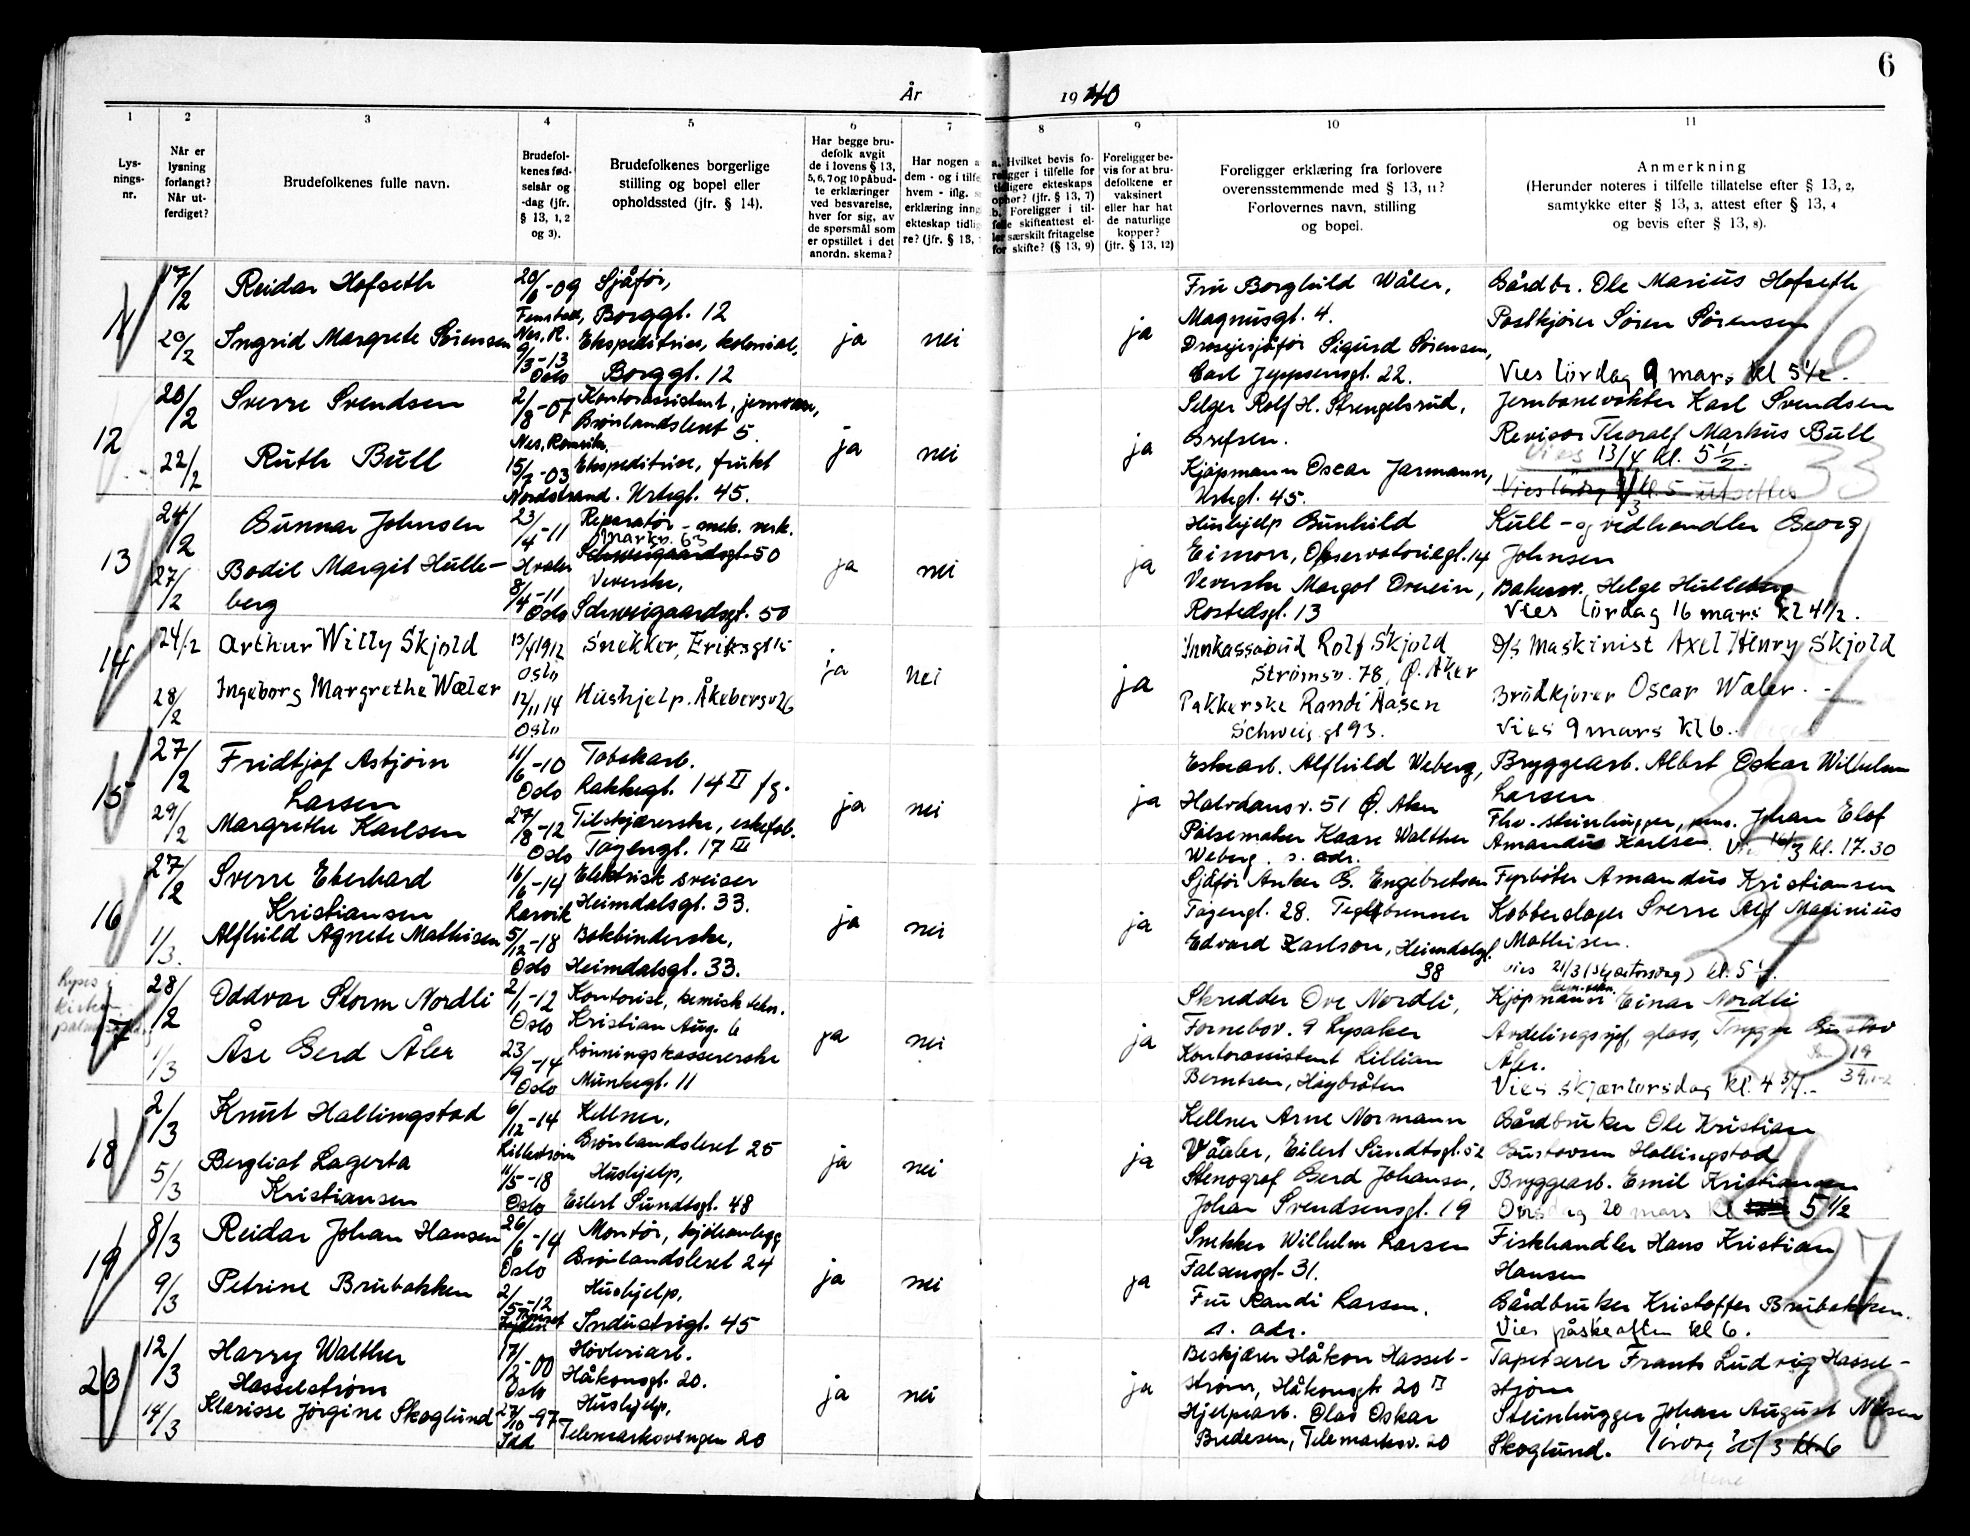 6
År 1940
1 2 3 4 5 6 7 8 9 10 11
Lys-
nings-
nr.
Når er
lysning
forlangt?
Når ut-
ferdiget?
Brudefolkenes fulle navn.
Brudefol-
kenes fød-
selsår og
-dag (jfr.
§ 13, 1, 2
og 3).
Brudefolkenes borgerlige
stilling og bopel eller
opholdssted (jfr. § 14).
Har begge bru-
defolk avgit
de i lovens § 13,
5, 6, 7 og 10 påbud-
te erklæringer
ved besvarelse,
hver for sig, av
de spørsmål som
er opstillet i det
anordn. skema?
Har nogen a
dem - og i tilfe
hvem - iflg.
erklæring inng
ekteskap tidlig
re? (jfr. § 13,
a. Hvilket bevis fo-
religger i tilfelle for
tidligere ekteskaps
ophør? (jfr. § 13, 7)
b. Foreligger i til-
felle skifteattest el-
ler særskilt fritagelse
for skifte? (§ 13, 9)
Foreligger be-
vis for at bru-
defolkene er
vaksinert
eller har hat
de naturlige
kopper?
(jfr. § 13, 12)
Foreligger erklæring fra forlovere
overensstemmende med § 13, 11?
Forlovernes navn, stilling
og bopel.
Anmerkning
(Herunder noteres i tilfelle tillatelse efter § 13, 2,
samtykke efter § 13, 3, attest efter § 13, 4
og bevis efter § 13, 8).
11
17/2
20/2
Reidar Hofseth
Ingrid Margrete Sørensen
20/6-09
Nes, R.
9/3-13
Oslo
Sjåfør,
Borggt. 12
Ekspeditrise, kolonial,
Borggt. 12
ja nei ja
Fru Borghild Wåler,
Magnusgt. 4.
Drosjesjåfør Sigurd Sørensen,
Carl Jeppesensgt. 22.
Gårdbr. Ole Marius Hofseth
Postkjører Søren Sørensen
Vies lørdag 9 mars kl 5 1/2.
16
12
20/2
22/2
Sverre Svendsen
Ruth Bull
2/8-07
Nes, Romerike
15/7-03
Nordstrand.
Kontorassistent, jernvare,
Grønlandsleret 5
Ekspeditrise, frukt
Urtegt. 45.
ja nei ja
Selger Rolf H. Strengelsrud,
Grefsen.
Kjøpmann Oscar Jarmann,
Urtegt. 45.
Jernbanevokter Karl Svendsen
Revisor Thoralf Markus Bull
Vies 13/4 kl. 5 1/2.
33
13
24/2
27/2
Gunnar Johnsen
Bodil Margit Hulle-
berg
23/4-11
Hvaler
8/4-11
Oslo
Reparatør - mek. verk.
Markv. 63
Schweigaardsgt. 50
Veverske,
Schweigaardsgt. 50
ja nei ja
Hushjelp Gunhild
Eimon, Observatoriegt. 14
Veverske Margot
Rostedsgt. 13
Kull- og vedhandler Georg
Johnsen
Bakersv. Helge Hulleberg
Vies lørdag 16 mars kl 4 1/2.
14
24/2
28/2
Arthur Willy Skjold
Ingeborg Margrethe Wæler
13/4 1912
Oslo
12/11 14
Oslo
Snekker, Eriksgt 15
Hushjelp. Åkebergv 26
ja nei ja
Innkassobud Rolf Skjold
Strømsv. 78, Ø. Aker
Pakkerske Randi Aasen
Schweig gt 93.
D/s Maskinist Axel Henry Skjold
Brødkjører Oscar Wæler.
Vies 9 mars kl 6.
15
27/2
29/2
Fridtjof Asbjørn
Larsen
Margrethe Karlsen
11/6-10
Oslo
27/8-12
Oslo
Tobakarb.
Rakkegt. 14 II fg.
Tilskjærerske, eskefab.
Tøyengt. 17 III
ja nei ja
Eskearb. Alfhild Weberg,
Halvdansv. 51 Ø. Aker
Pølsemaker Kaare Walther
Weberg. s. adr.
Bryggearb. Albert Oskar Wilhelm
Larsen
Fhv. steinhugger, Johan Elof
Amandus Karlsen. Vies 16/3 kl. 17.30
16
27/2
1/3.
Sverre Eberhard
Kristiansen
Alfhild Agnete Mathisen
16/6-14
Larvik
5/12-18
Oslo
Elektrisk sveiser
Heimdalsgt. 33.
Bokbinderske,
Heimdalsgt. 33.
ja nei ja
Sjåfør Anker G. Engebretsen
Tøyengt. 28. Teglbrenner
Edvard Karlson, Heimdalsgt.
38
Fyrbøter Amandus Kristiansen
Kobberslager Sverre Alf Marinius
Mathisen.
Vies 21/3 (Skjærtorsdag) kl. 5 1/2.
24
Lyses i
kirken
17
28/2
1/3
Oddvar Storm Nordli
Åse Gerd Åler
2/1-12
Oslo
23/9-14
Oslo
Kontorist, kemisk tekn.
Kristian Aug. 6
Lønningskassererske
Munkegt. 11
ja nei ja
Skredder Ove Nordli,
Fornebov. 9 Lysaker
Kontorassistent Lillian
Berntsen, Høybråten
Kjøpmann Einar Nordli
Avdelingssjef, glass, Trygve Gustav
Åler.
Vies skjærtorsdag kl. 4 3/4.
25
18
2/3
5/3
Knut Hallingstad
Bergliot Lagerta
Kristiansen
6/12-14
Lillestrøm
11/5-18
Oslo
Kellner,
Grønlandsleret 25
Hushjelp,
Eilert Sundtsgt. 48
ja nei ja
Kellner Arne Normann
Våler, Eilert Sundtsgt. 52
Stenograf Gerd Johansen,
Johan Svendsensgt. 19
Gårdbruker Ole Kristian
Gustavsen Hallingstad
Bryggearb. Emil Kristiansen
Onsdag 20 mars kl 5 1/2
19
8/3
9/3
Reidar Johan Hansen
Petrine Brubakken
26/6-14
Oslo
2/5-12
Montør, kjøleanlegg
Grønlandsleret 24
Hushjelp,
Industrigt. 45
ja nei ja
Snekker Wilhelm Larsen
Falsensgt. 31.
Fru Randi Larsen.
s. adr.
Fiskhandler Hans Kristian
Hansen
Gårdbruker Kristoffer Brubakken.
Vies påskeaften kl 6.
27
20
12/3
14/3
Harry Walther
Hasselstrøm
Klarisse Jørgine Skoglund
17/2-00
Oslo
27/10-97
Idd
Høvleriarb.
Håkonsgt. 20.
Hushjelp,
Telemarksvingen 20
ja nei ja
Beskjærer Håkon Hassel-
strøm, Håkonsgt. 20 II
Hjelpearb. Olav Oskar
Bredesen, Telemarksv. 20
Tapetserer Frants Ludvig Hassel-
strøm
Steinhugger Johan August Nilsen
Skoglund. lørdag 30/3 kl. 6
28